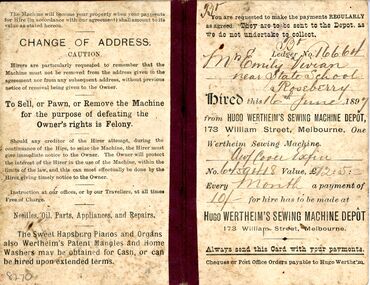 The Machine will become your property when your payments
for Hire (in accordance with our agreement) shall amount to its
value as stated hereon.
CHANGE OF ADDRESS.
CAUTION.
Hirers are particularly requested to remember that the
Machine must not be removed from the address given in the
agreement nor from any subsequent address, without previous
notice of removal being given to the Owner.
To Sell, or Pawn, or Remove the Machine
for the purpose of defeating the
Owner's rights is Felony.
Should any creditor of the Hirer attempt, during the
continuance of the Hire, to seize the Machine, the Hirer must
give immediate notice to the Owner. The Owner will protect
the interest of the Hirer in the use of the Machine, within the
limits of the law, and this can most effectually be done by the
Hirer giving timely notice to the Owner.
Instruction at our offices, or by our Travellers, at all times
Free of Charge.
Needles, Oil, Parts, Appliances, and Repairs.
The Sweet Hapsburg Pianos and Organs
also Wertheim's Patent Mangles and Home
Washers may be obtained for Cash, or can be
hired upon extended terms.
8270
You are requested to make the payments REGULARLY
as agreed. They are to be sent to the Depot, as
we do not undertake to collect.
Ledger No. 16664
Mrs Emily Vivian
near State School
Rosebery
Hired this 16 June 1897
from HUGO WERTHEIM'S SEWING MACHINE DEPÔT,
173 William Street, Melbourne. One
Wertheim Sewing Machine.
Cover
No. Value, £12.15.
Every Month a payment of
10/- for hire has to be made at
HUGO WERTHEIM'S SEWING MACHINE DEPÔT
173 William St., Melbourne.
Always send this Card with your payments.
Cheques or Post Office Orders payable to Hugo Wertheim.